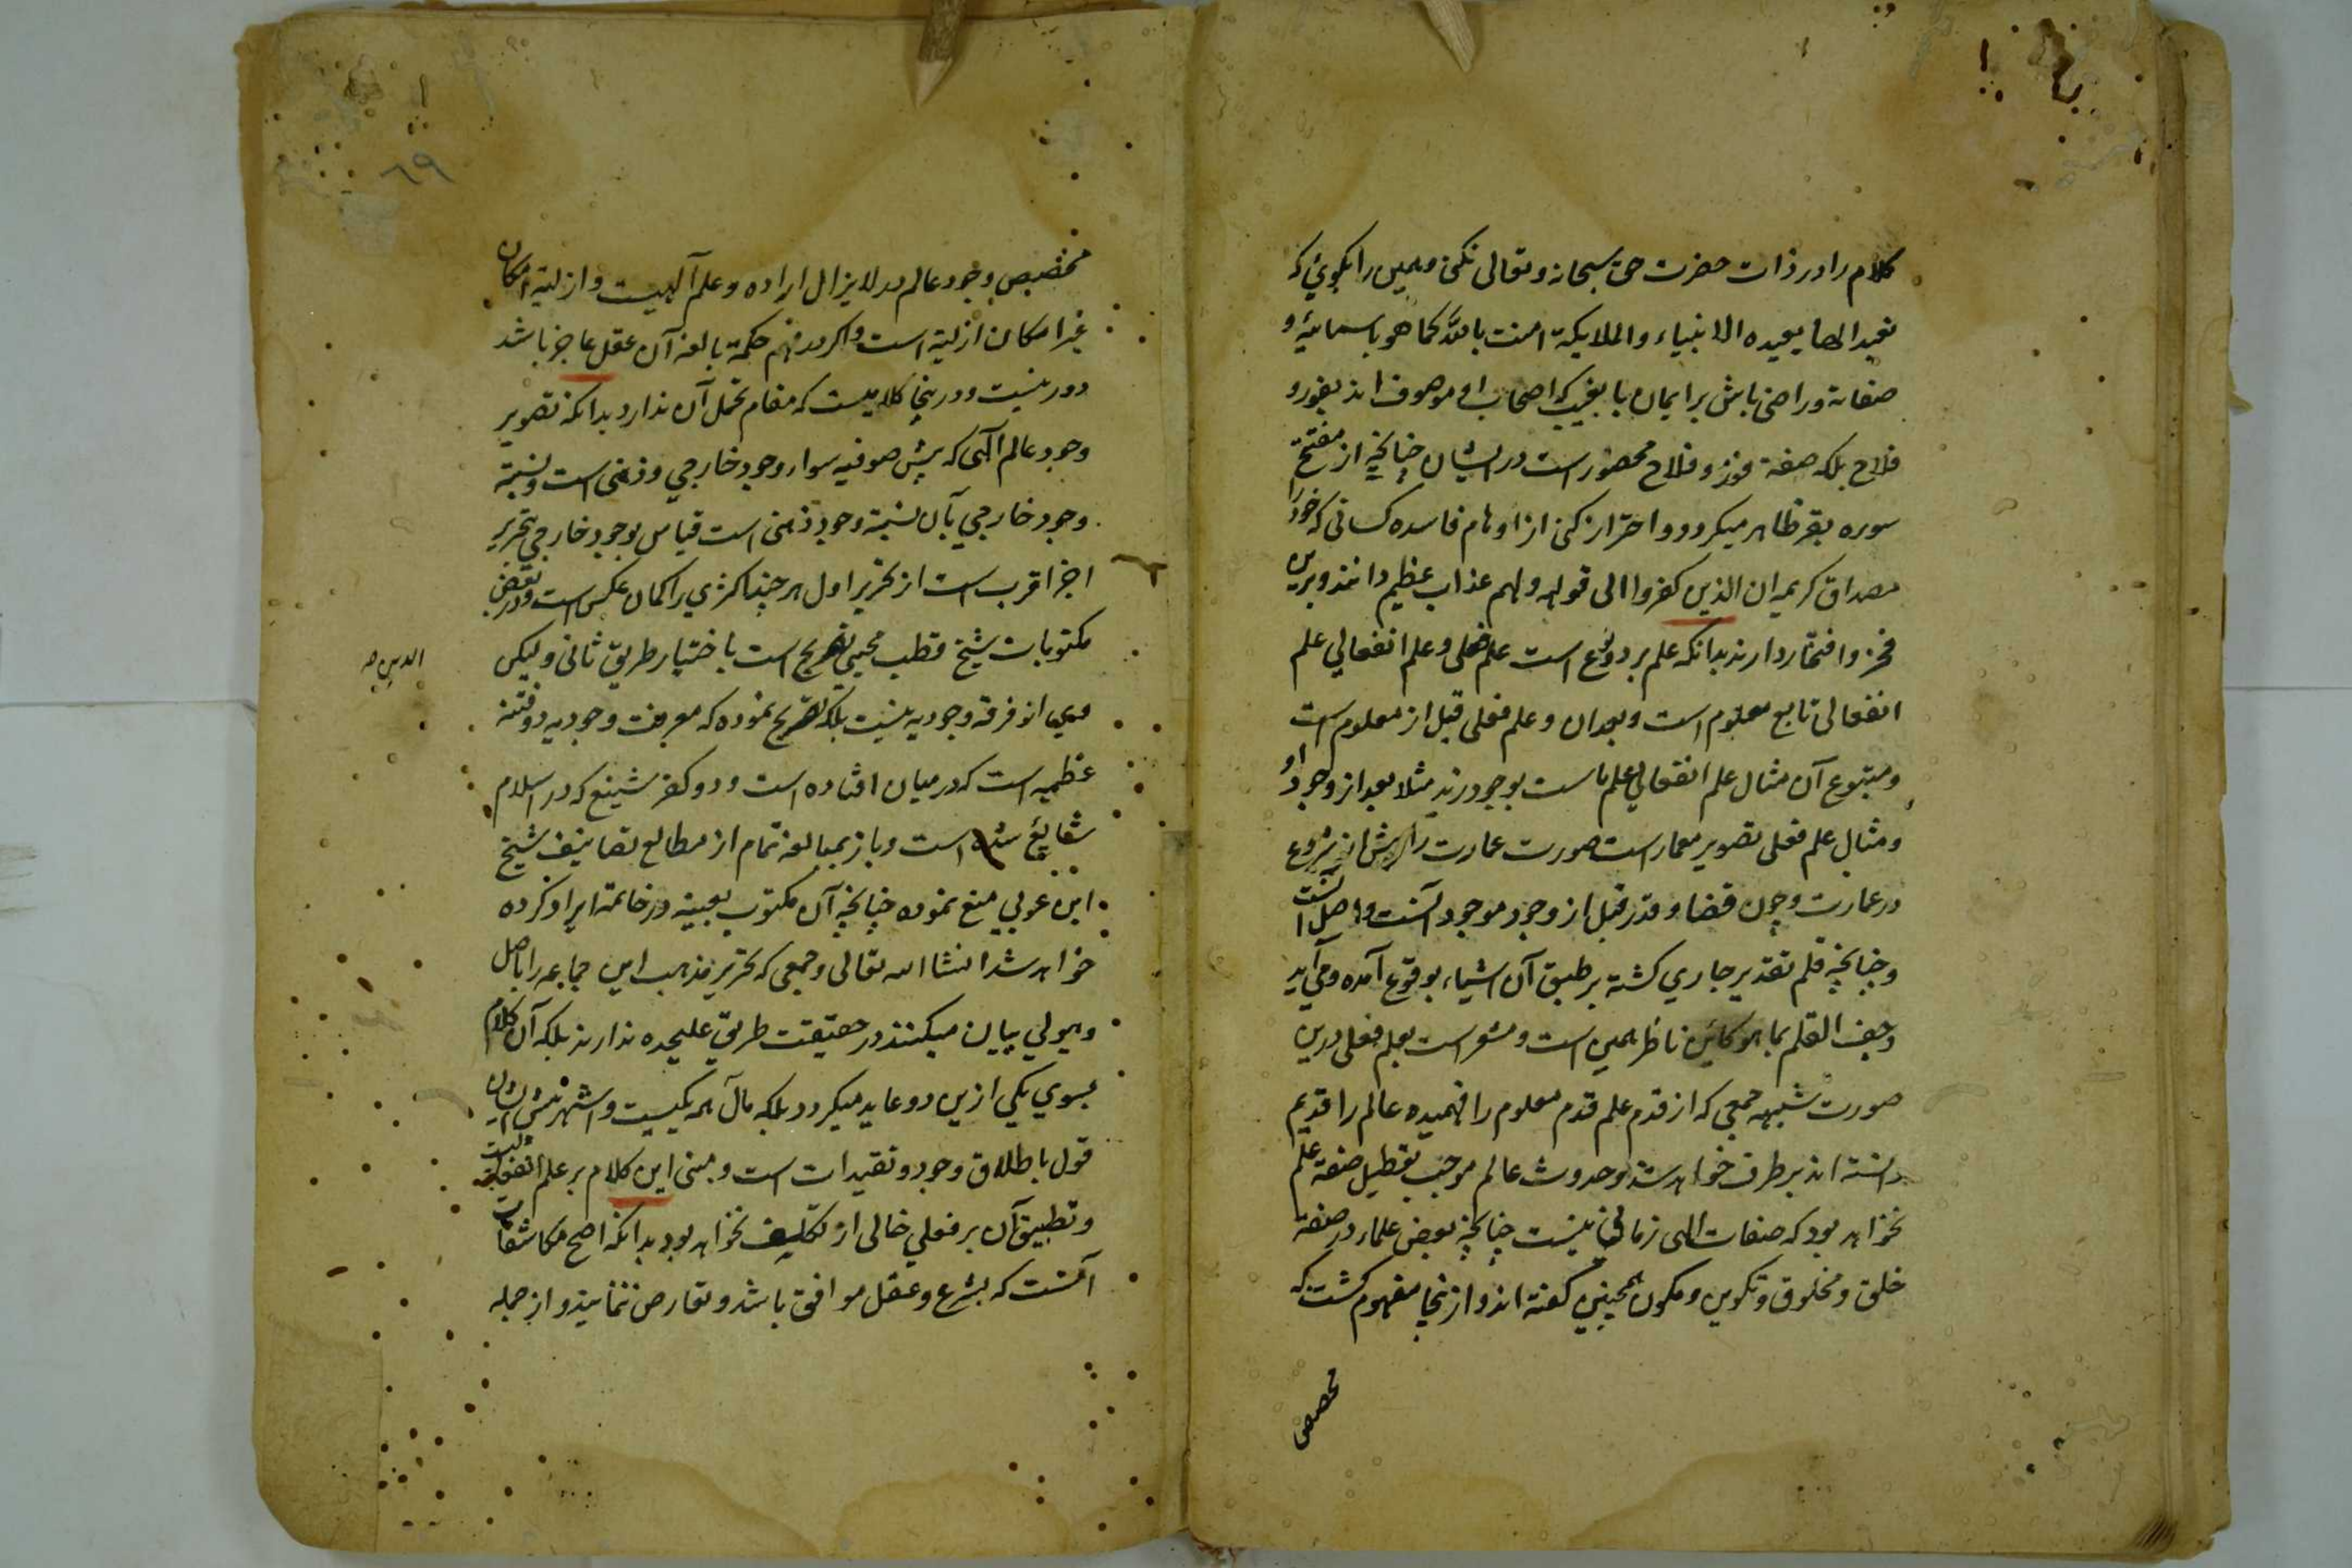 کلام را در ذات حضرت حق سبحانه و تعالی نکنی و همین را بکوئی که
نعبد الها یعبده الانبیاء والملایکة امنت بالله کما هو باسمائه و
صفاته و راضی باش بر ایمان بالغیب که اصحاب او موصوف اند بفوز و
فلاح بلکه صفة فوز و فلاح محصور است در ایشان چنانچه از مفتتح
سوره بقر ظاهر میکردد و احتراز کنی از اوهام فاسده کسانی که خود را
مصداق کریمه ان الذین کفروا الی قوله ولهم عذاب عظیم دانند و برین
فخر و افتخار دارند بدانکه علم بر دو نوع است علم فعلی و علم انفعالی علم
انفعالی تابع معلوم است و بعد ان و علم فعلی قبل از معلوم است
و متبوع آن مثال علم انفعالی علم ماست بوجود زید مثلا بعد از وجود او
و مثال علم فعلی تصویر معمار است صورت عمارت را پیش از شروع
در عمارت و چون قضا و قدر قبل از وجود موجود است و اصل
و چنانچه قلم تقدیر جاری کشته بر طبق آن اشیاء بوقوع آمده و می آید
و جف القلم بما هو کائن ناظر همین است و مشعر است بعلم فعلی درین
صورت شبهه جمعی که از قدم علم قدم معلوم را فهمیده عالم را قدیم
دانسته اند بر طرف خواهد شد و حدوث عالم موجب تعطیل صفة علم
نخواهد بود که صفات الهی زمانی نیست چنانچه بعض علماء در صفة
خلق و مخلوق و تکوین و مکون همچنین کفته اند و ازینجا مفهوم کشت که
مخصص
٦٩
مخصص وجود عالم در لا یزال اراده و علم آلهیت و ازلیة امکان
غیر امکان ازلیة است و اکر در فهم حکمة بالغه آن عقل عاجز باشد
دور نیست و درینجا کلامیست که مقام تحمل آن ندارد بدانکه تصویر
وجود عالم الهی که پیش صوفیه سوار وجود خارجی و ذهنی است و نسبة
وجود خارجی بآن نسبة وجود ذهنی است قیاس بوجود خارجی بتحریر
اخر اقرب است از تحریر اول هر چند اکثری را کمان عکس است و در بعض
مکتوبات شیخ قطب محیی تصریح است باختیار طریق ثانی و لیکن
الدین صح
وی از فرقه وجودیه نیست بلکه تصریح نموده که معرفت وجودیه دو فتنه
عظیمه است که در میان افتاده است و دو کفر شنیع که در اسلام
شایع شده است و باز بمبالغه تمام از مطالع تصانیف شیخ
ابن عربی منع نموده چنانچه آن مکتوب بعینه در خاتمه ایراد کرده
خواهد شد انشا الله تعالی و جمعی که تحریر مذهب این جماعه را باصل
و هیولی بیان میکنند در حقیقت طریق علیحده ندارند بلکه آن کلام
بسوی یکی ازین دو عاید میکردد بلکه مآل همه یکیست و اشهر پیش ایشان
قول باطلاق وجود و تقیدات است و مبنی این کلام بر علم انفعالیست
و تطبیق آن بر فعلی خالی از تکلیف نخواهد بود بدانکه اصح مکاشفات
آنست که بشرع و عقل موافق باشد و تعارض ننمایند و از جمله